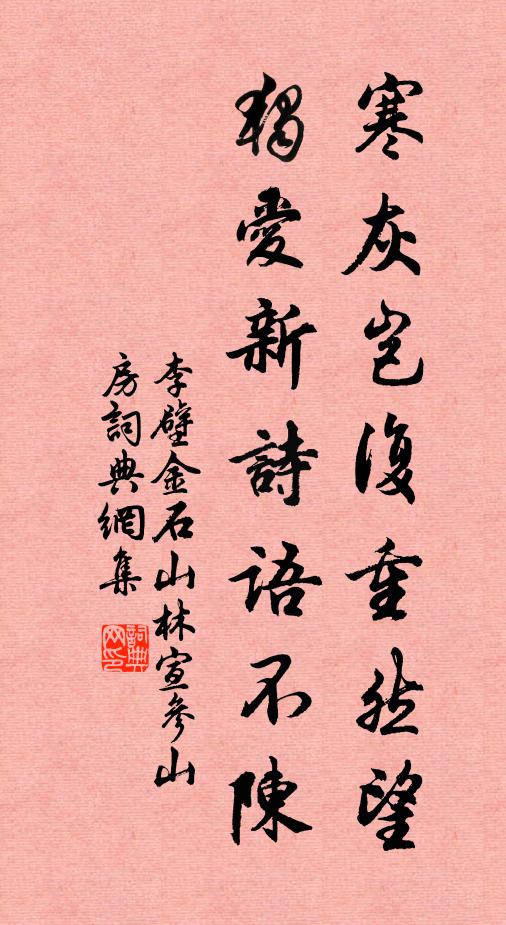 寒灰岂復重然望
獨愛新詩語不陳
李壁金石山林宣參山
房詞典網集
詞典网印